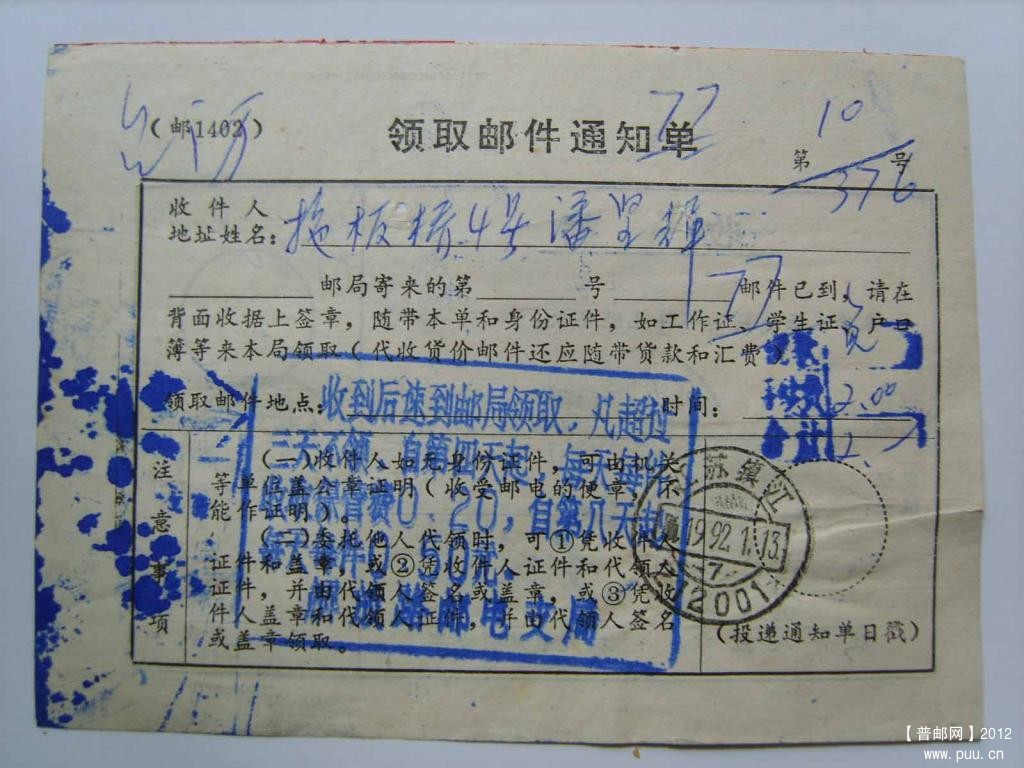 （邮1402）
领取邮件通知单
77
10
第 号
376
收件人
地址姓名：拖板桥4号潘
邮局寄来的第 号 邮件已到，请在
77
背面收据上签章，随带本单和身份证件，如工作证、学生证、户口
簿等来本局领取（代收货价邮件还应随带货款和汇费）
领取邮件地点： 时间：
2.00
合计
收到后速到邮局领取，凡超过
三天不领，自第四天起，每天每件
收保管费0.20，自第八天起
每天每件0.50元。
邮电支局
注意事项
（一）收件人如无身份证件，可由机关
等单位盖公章证明（收受邮电的便章，不
能作证明）。
（二）委托他人代领时，可①凭收件人
证件和盖章，或②凭收件人证件和代领人
证件，并由代领人签名或盖章，或③凭收
件人盖章和代领人证件，并由代领人签名
或盖章领取。
苏镇江
1992.1.13.
7
212001
（投递通知单日戳）
【普邮网】2012
www.puu.cn